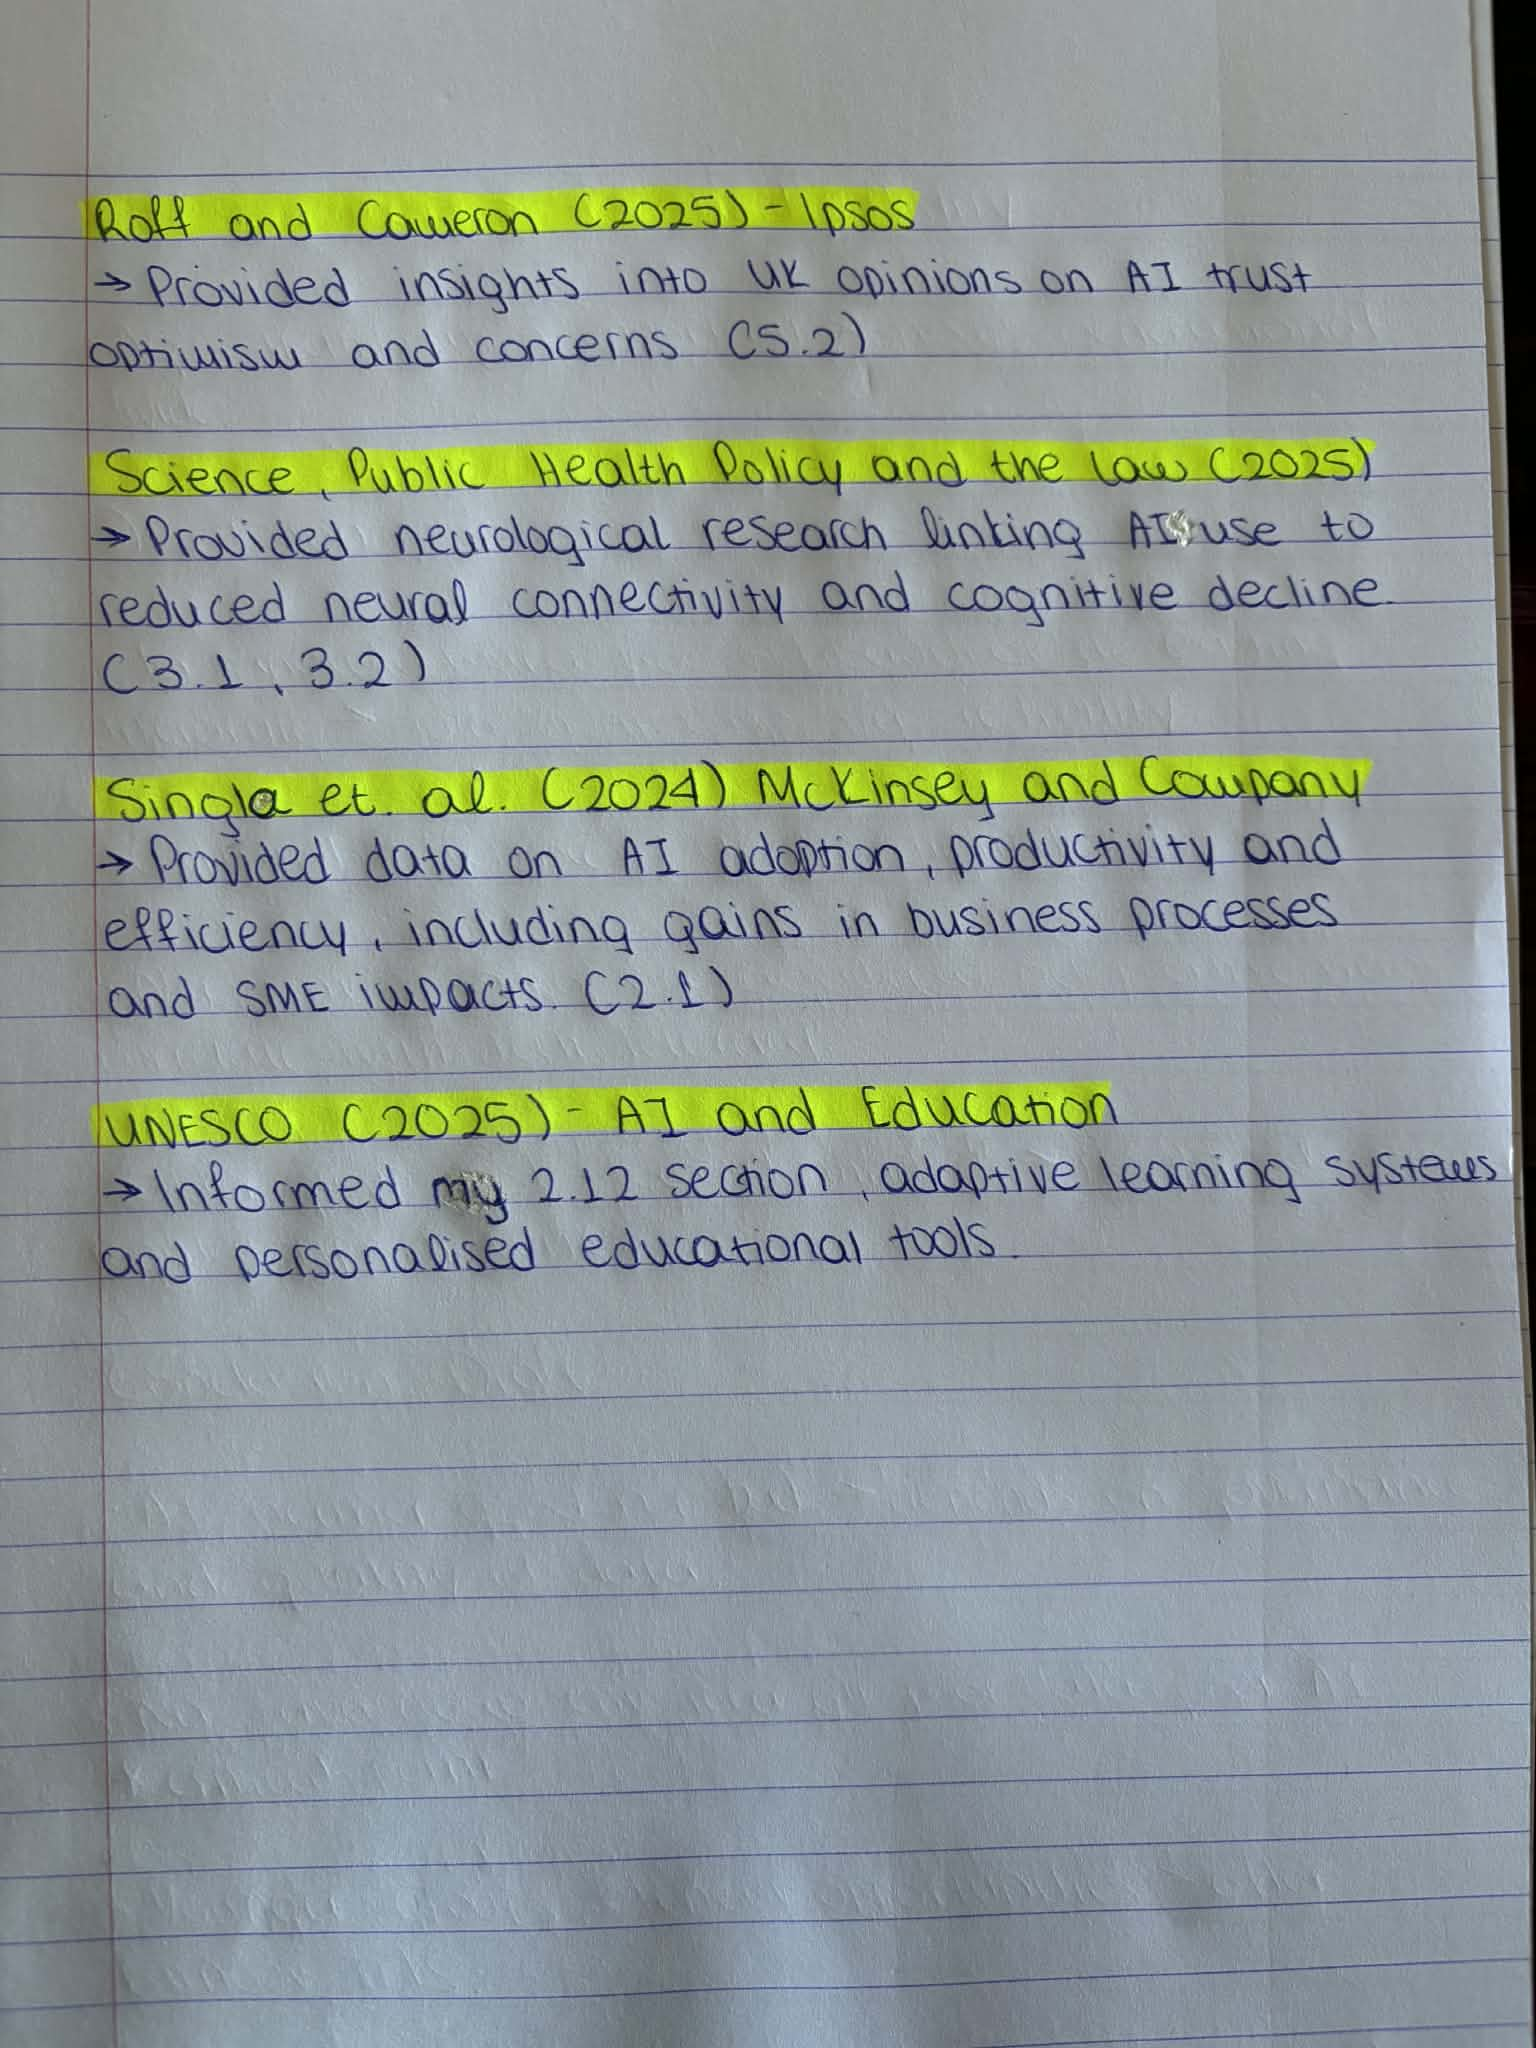 Roff and Cameron (2025) - Ipsos
→ Provided insights into UK opinions on AI trust
optimism and concerns (5.2)
Science, Public Health Policy and the law (2025)
→ Provided neurological research linking AI use to
reduced neural connectivity and cognitive decline.
(3.1, 3.2)
Singla et. al. (2024) McKinsey and Company
→ Provided data on AI adoption, productivity and
efficiency, including gains in business processes
and SME impacts. (2.1)
UNESCO (2025) - AI and Education
→ Informed my 2.12 section, adaptive learning systems
and personalised educational tools.